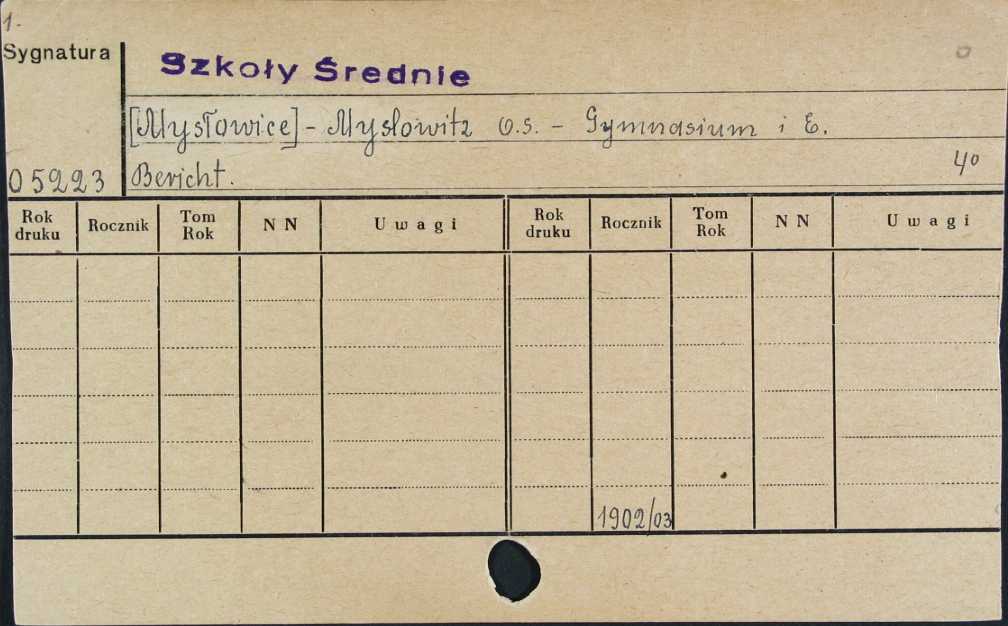 1.
Sygnatura
Szkoły Średnie
[Mysłowice] - Myslowitz O.S. - Gymnasium i E.
Bericht. 4°
05223
Rok druku Rocznik Tom Rok N N Uwagi Rok druku Rocznik Tom Rok N N Uwagi
1902/03